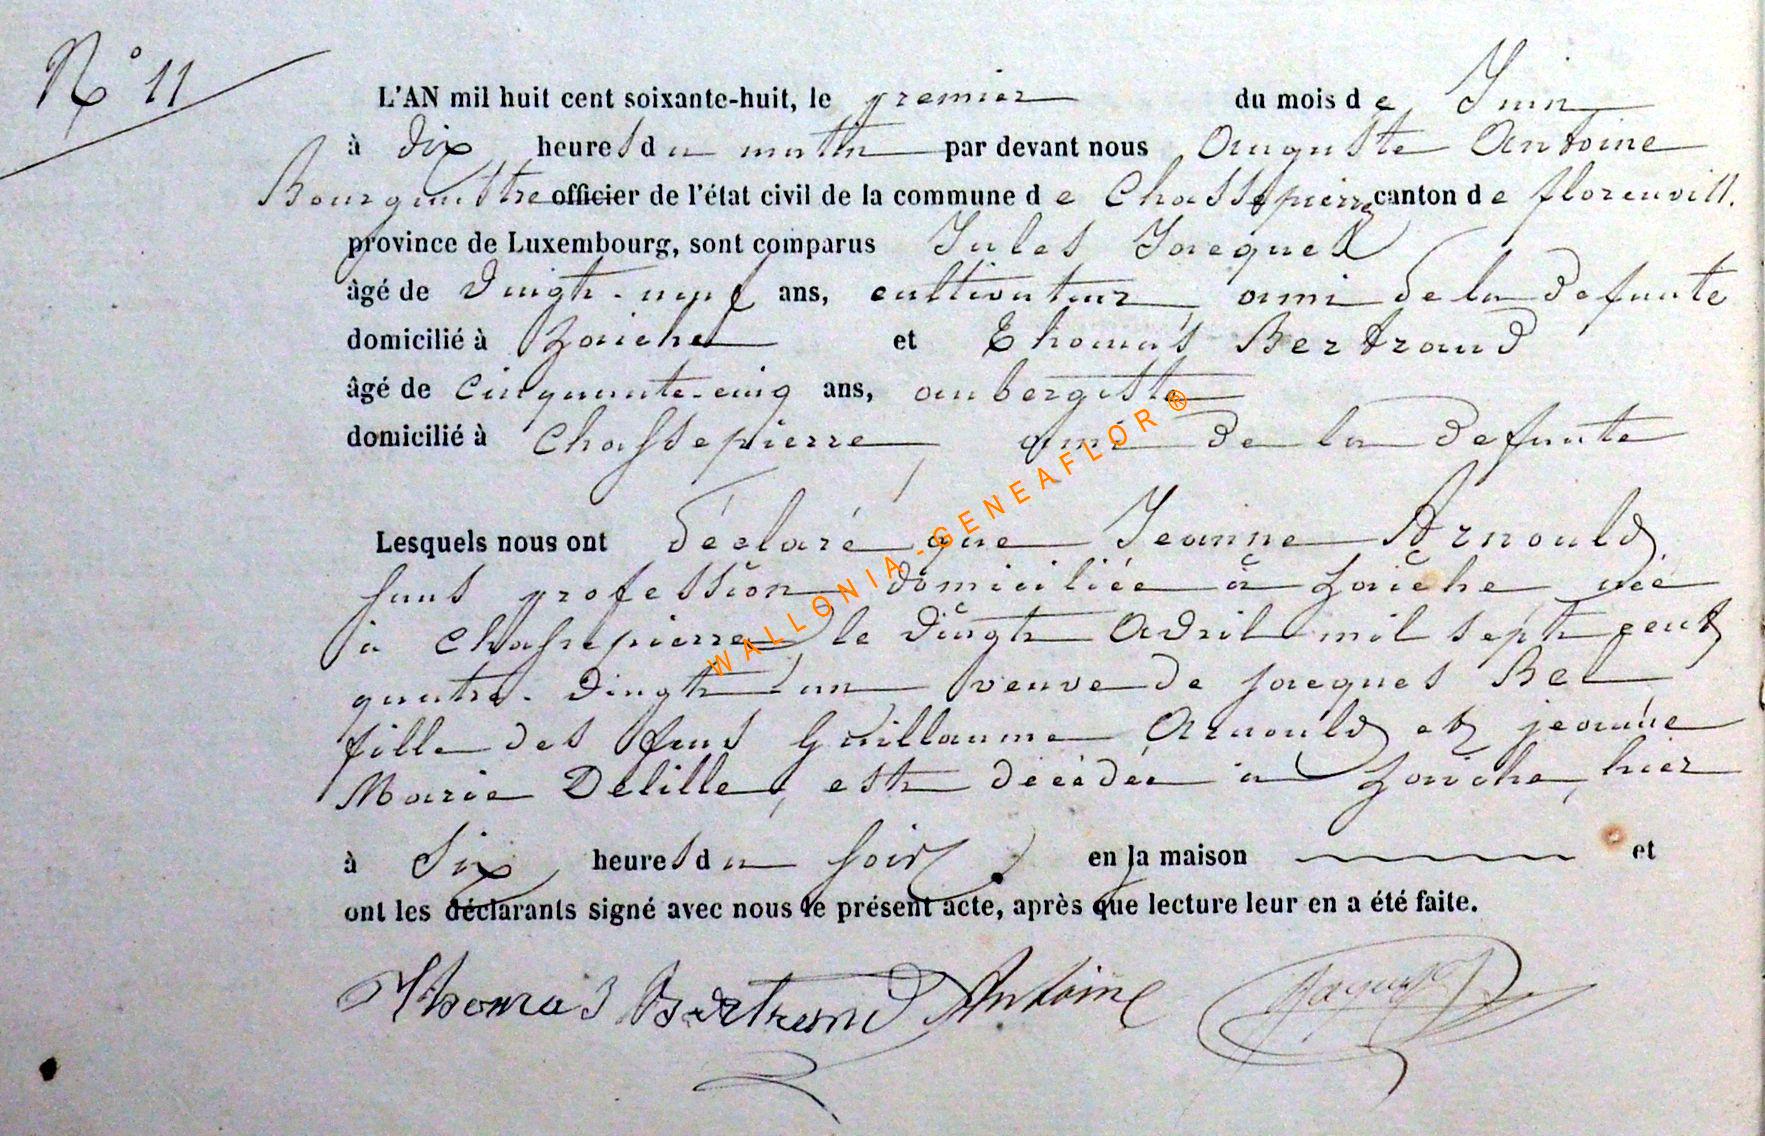 N° 11
L'AN mil huit cent soixante-huit, le premier du mois de Juin
à dix heures du matin par devant nous Auguste Antoine
Bourgmestre officier de l'état civil de la commune de Chassepierre canton de florenvill.
province de Luxembourg, sont comparus Jules Jacquet
âgé de vingt-neuf ans, cultivateur, ami de la defunte
domicilié à Laiche et Thomas Bertrand
âgé de cinquante-cinq ans, aubergiste
domicilié à Chassepierre, ami de la defunte
Lesquels nous ont déclaré que Jeanne Arnould,
sans profession domiciliée à Laiche née
à Chassepierre le vingt Avril mil sept cent
quatre-vingt un veuve de jacques Bel
fille des feus Guillaume Arnould et jeanne
Marie Delille, est décédée à Laiche, hier
à six heures du soir en la maison et
ont les déclarants signé avec nous le présent acte, après que lecture leur en a été faite.
Thomas Bertrand Antoine Jacquet
WALLONIA-GENEAFLOR®